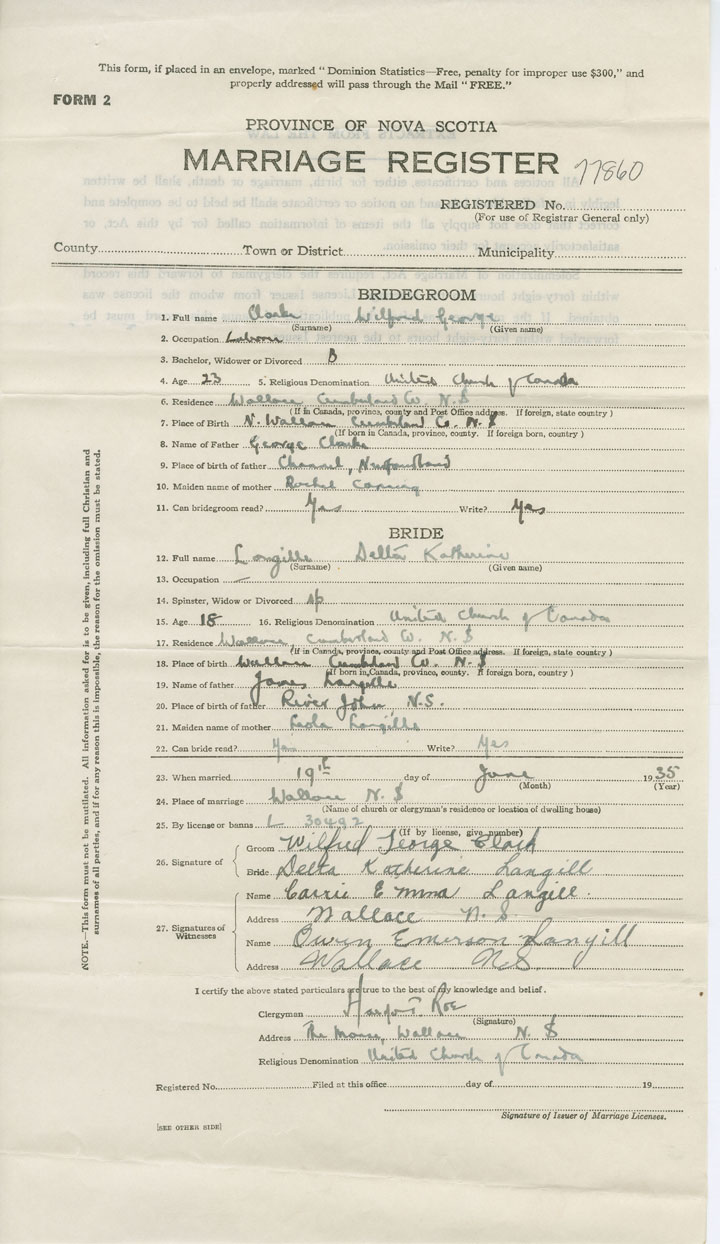 This form, if placed in an envelope, marked "Dominion Statistics—Free, penalty for improper use $300," and
properly addressed will pass through the Mail "FREE."
FORM 2
PROVINCE OF NOVA SCOTIA
MARRIAGE REGISTER 77860
REGISTERED No.
(For use of Registrar General only)
County Town or District Municipality
BRIDEGROOM
1. Full name Clarke Wilfred George
(Surname) (Given name)
2. Occupation Laborer
3. Bachelor, Widower or Divorced B
4. Age 23 5. Religious Denomination United Church of Canada
6. Residence Wallace Cumberland Co. N.S
(If in Canada, province, county and Post Office address. If foreign, state country )
7. Place of Birth N. Wallace Cumberland Co. N.S
(If born in Canada, province, county. If foreign born, country )
8. Name of Father George Clarke
9. Place of birth of father Channel, Newfoundland
10. Maiden name of mother Rachel
11. Can bridegroom read? Yes Write? Yes
BRIDE
12. Full name Langille Delta Katherine
(Surname) (Given name)
13. Occupation —
14. Spinster, Widow or Divorced Sp
15. Age 18 16. Religious Denomination United Church of Canada
17. Residence Wallace Cumberland Co. N.S
(If in Canada, province, county and Post Office address. If foreign, state country )
18. Place of birth Wallace Cumberland Co. N.S
(If born in Canada, province, county. If foreign born, country )
19. Name of father James Langille
20. Place of birth of father River John N.S.
21. Maiden name of mother Leola Langille
22. Can bride read? Yes Write? Yes
23. When married 19th day of June 1935
(Month) (Year)
24. Place of marriage Wallace N.S
(Name of church or clergyman's residence or location of dwelling house)
25. By license or banns L 30492
(If by license, give number)
26. Signature of
Groom Wilfred George Clark
Bride Delta Katherine Langill
27. Signatures of Witnesses
Name Carrie Emma Langill.
Address Wallace N.S
Name Owen Emerson Langill
Address Wallace N.S.
I certify the above stated particulars are true to the best of my knowledge and belief.
Clergyman Roe
(Signature)
Address The Manse, Wallace N.S
Religious Denomination United Church of Canada
Registered No. Filed at this office day of 19
Signature of Issuer of Marriage Licenses.
[SEE OTHER SIDE]
NOTE.—This form must not be mutilated. All information asked for is to be given, including full Christian and
surnames of all parties, and if for any reason this is impossible, the reason for the omission must be stated.